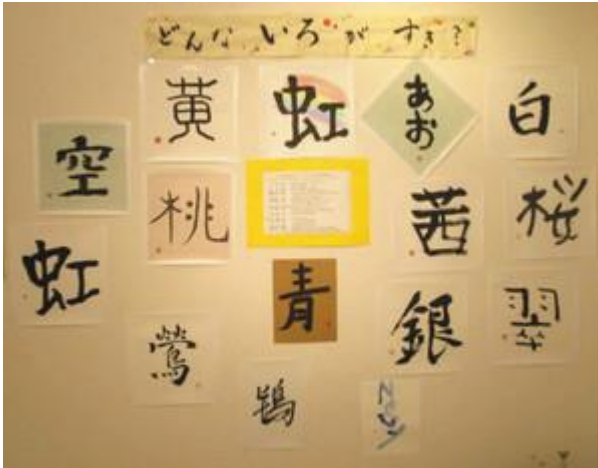 どんないろがすき?
黄
虹
あお
白
空
桃
茜
桜
虹
青
銀
翠
鶯
鴇